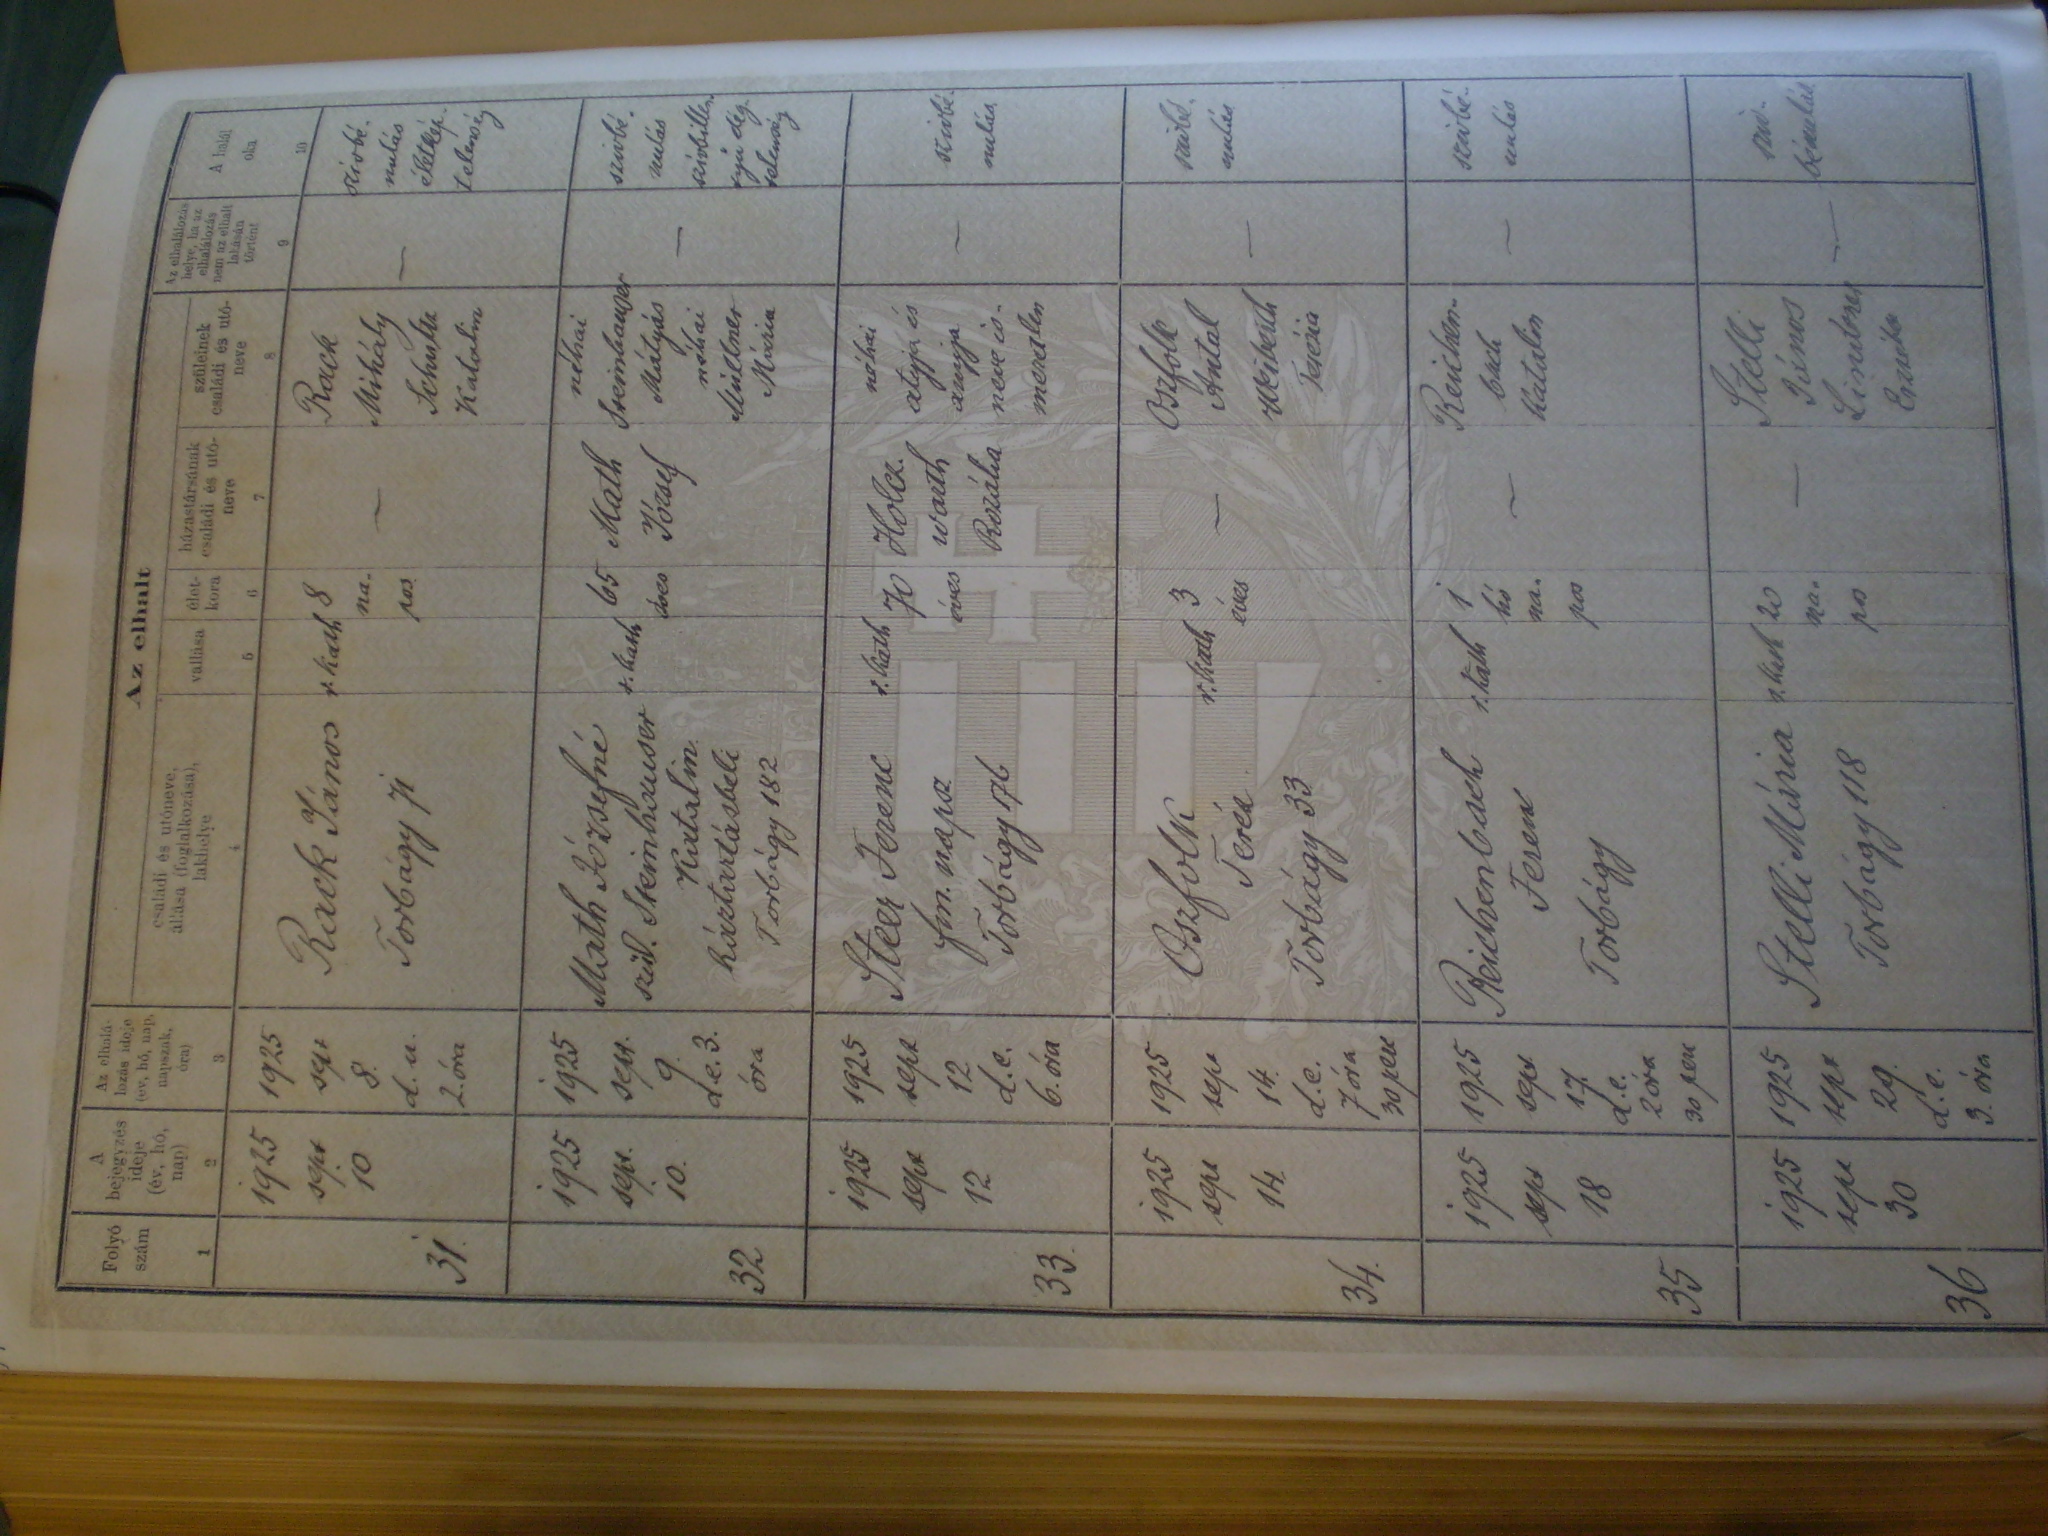 Az elhalt
Folyó
szám
1
A
bejegyzés
ideje
(év, hó,
nap)
2
Az elhalá-
lozás ideje
(év, hó, nap,
napszak,
óra)
3
családi és utóneve,
állása (foglalkozása),
lakhelye
4
vallása
5
élet-
kora
6
házastársának
családi és utó-
neve
7
szüleinek
családi és utó-
neve
8
Az elhalálozás
helye, ha az
elhalálozás
nem az elhalt
lakásán
történt
9
A halál
oka
10
31.
1925
sept
10
1925
sept
8.
d. u.
2. óra
Rack János
Torbágy 71
r. kath
8
na-
pos
—
Rack
Mihály
Schultz
Katalin
—
szivbé-
nulás
életkép-
telenség
32
1925
sept.
10.
1925
sept.
9.
d.e. 3.
óra
Math Józsefné
szül. Steinhauser
Katalin
háztartásbeli
Torbágy 182
r. kath
65
éves
Math
József
néhai
Steinhauser
Mátyás
néhai
Müllner
Mária
—
szivbé-
nulás
szivbillen-
tyü elég-
telenség
33.
1925
sept
12
1925
sept
12.
d. e.
6. óra
Steer Ferenc
fm. napsz
Torbágy 176
r. kath
70
éves
Holcz-
warth
Rozália
néhai
atyja és
anyja
neve is-
meretlen
—
szivbé-
nulás
34.
1925
sept
14.
1925
sept
14.
d. e.
7 óra
30 perc
Oszfolk
Teréz
Torbágy 33
r. kath
3
éves
—
Oszfolk
Antal
Terézia
—
szivbé-
nulás
35
1925
sept
18
1925
sept
17.
d. e.
2 óra
30 perc
Reichenbach
Ferenc
Torbágy
r. kath
1
hó
na-
pos
—
Reichen-
bach
Katalin
—
szivbé-
nulás
36
1925
sept
30
1925
sept
29.
d. e.
3. óra
Stelli Mária
Torbágy 118
r. kath
20
na-
pos
—
Stelli
János
Erzsébet
—
sziv-
bénulás